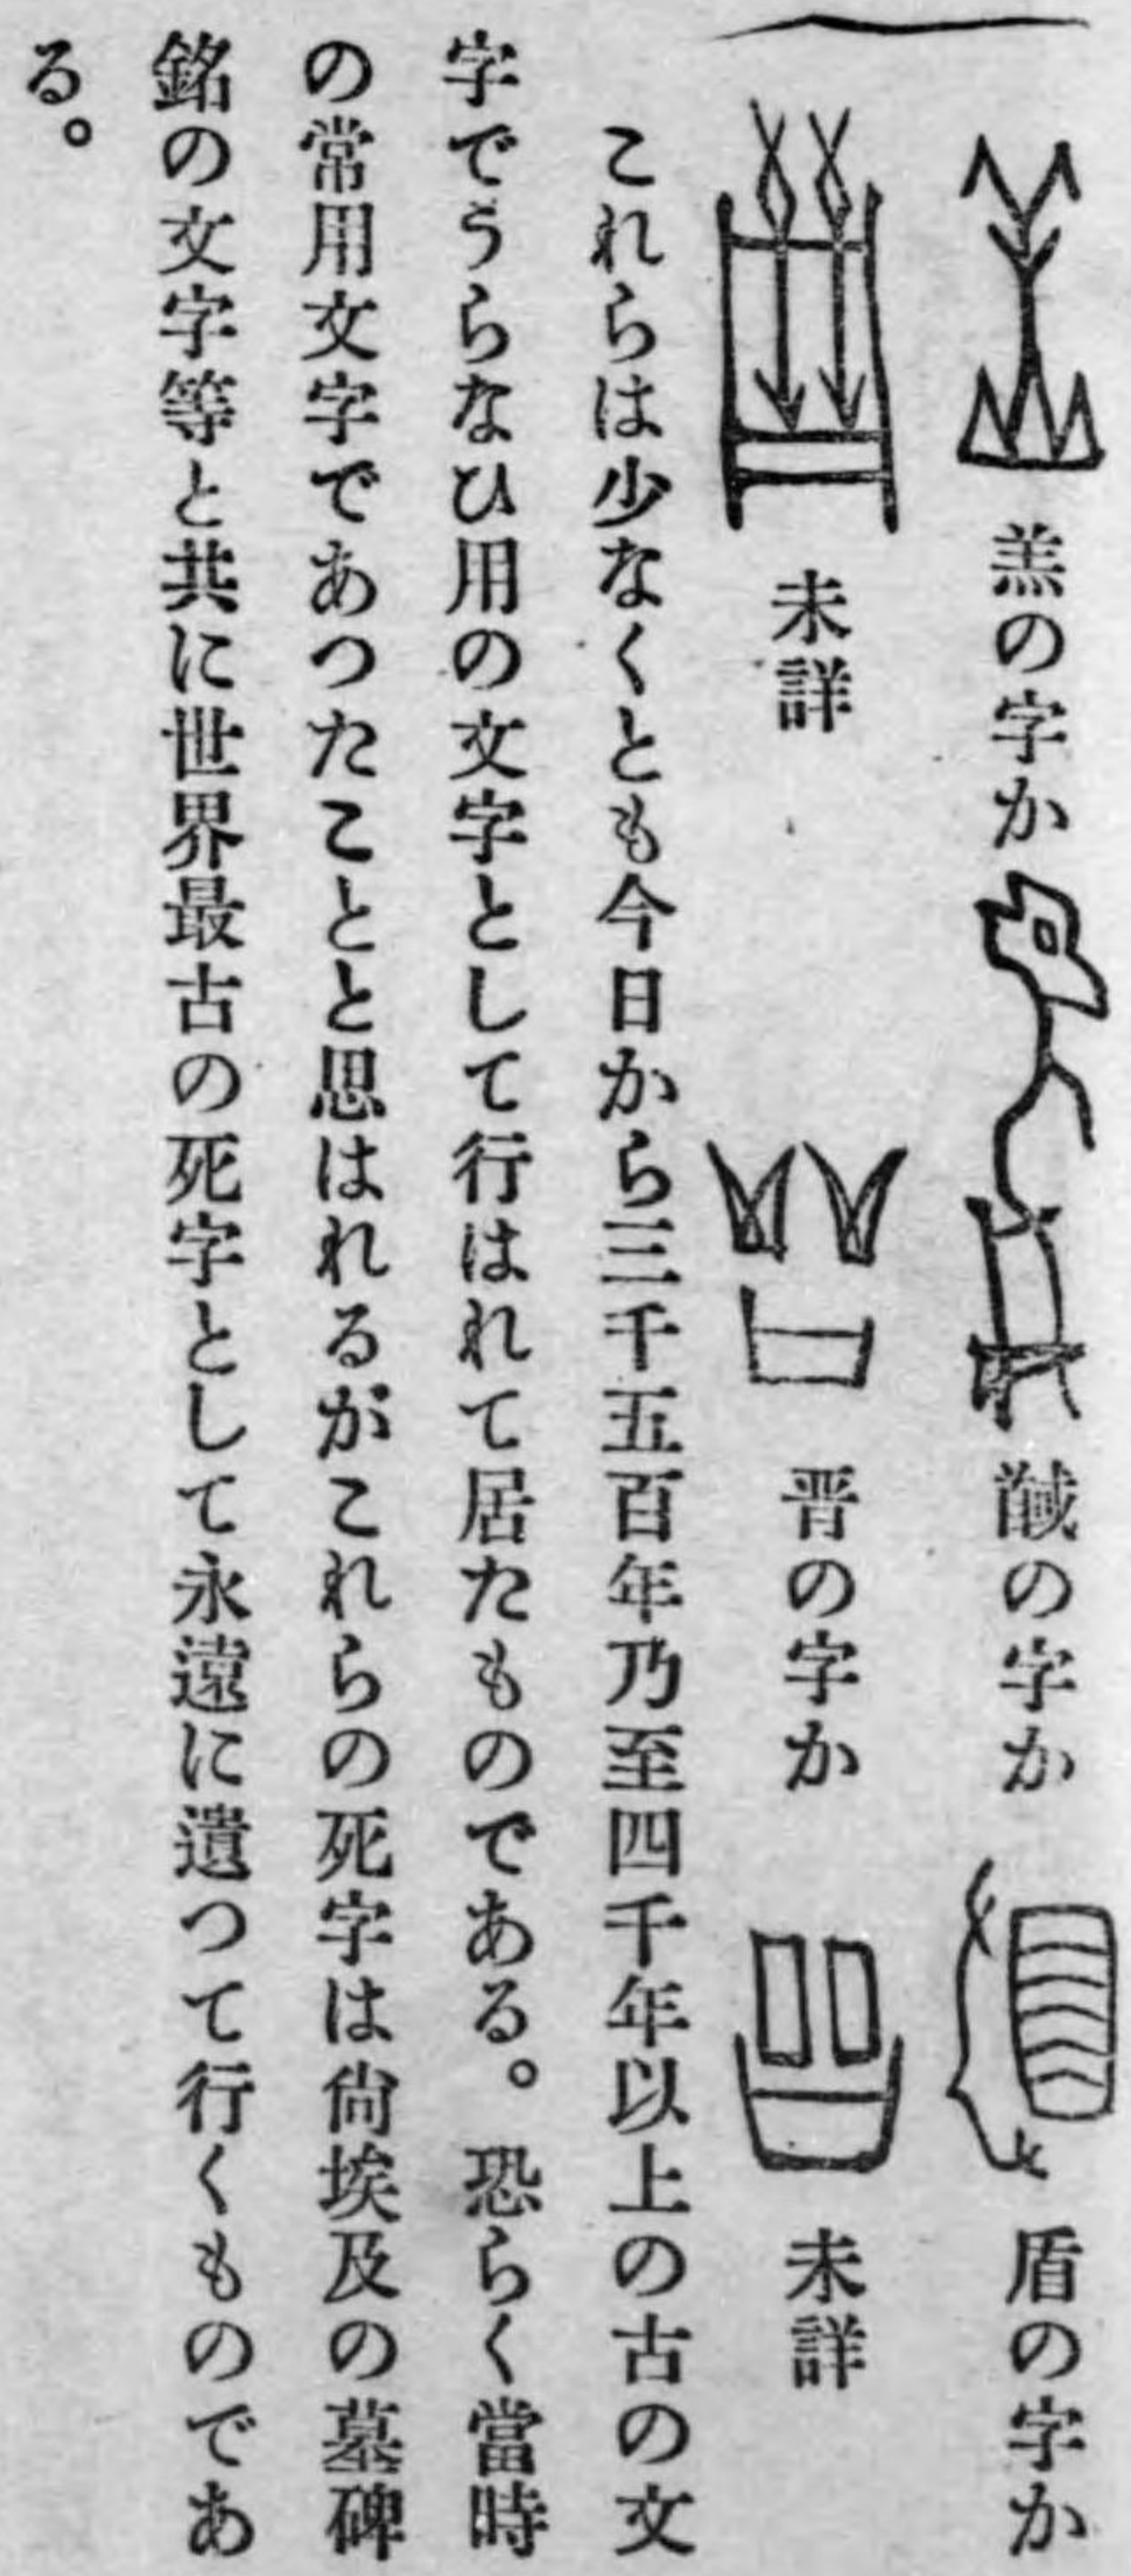 羔の字か 馘の字か 盾の字か
未詳 晋の字か 未詳
これらは少なくとも今日から三千五百年乃至四千年以上の古の文
字でうらなひ用の文字として行はれて居たものである。恐らく當時
の常用文字であつたことと思はれるがこれらの死字は尙埃及の墓碑
銘の文字等と共に世界最古の死字として永遠に遺つて行くものであ
る。